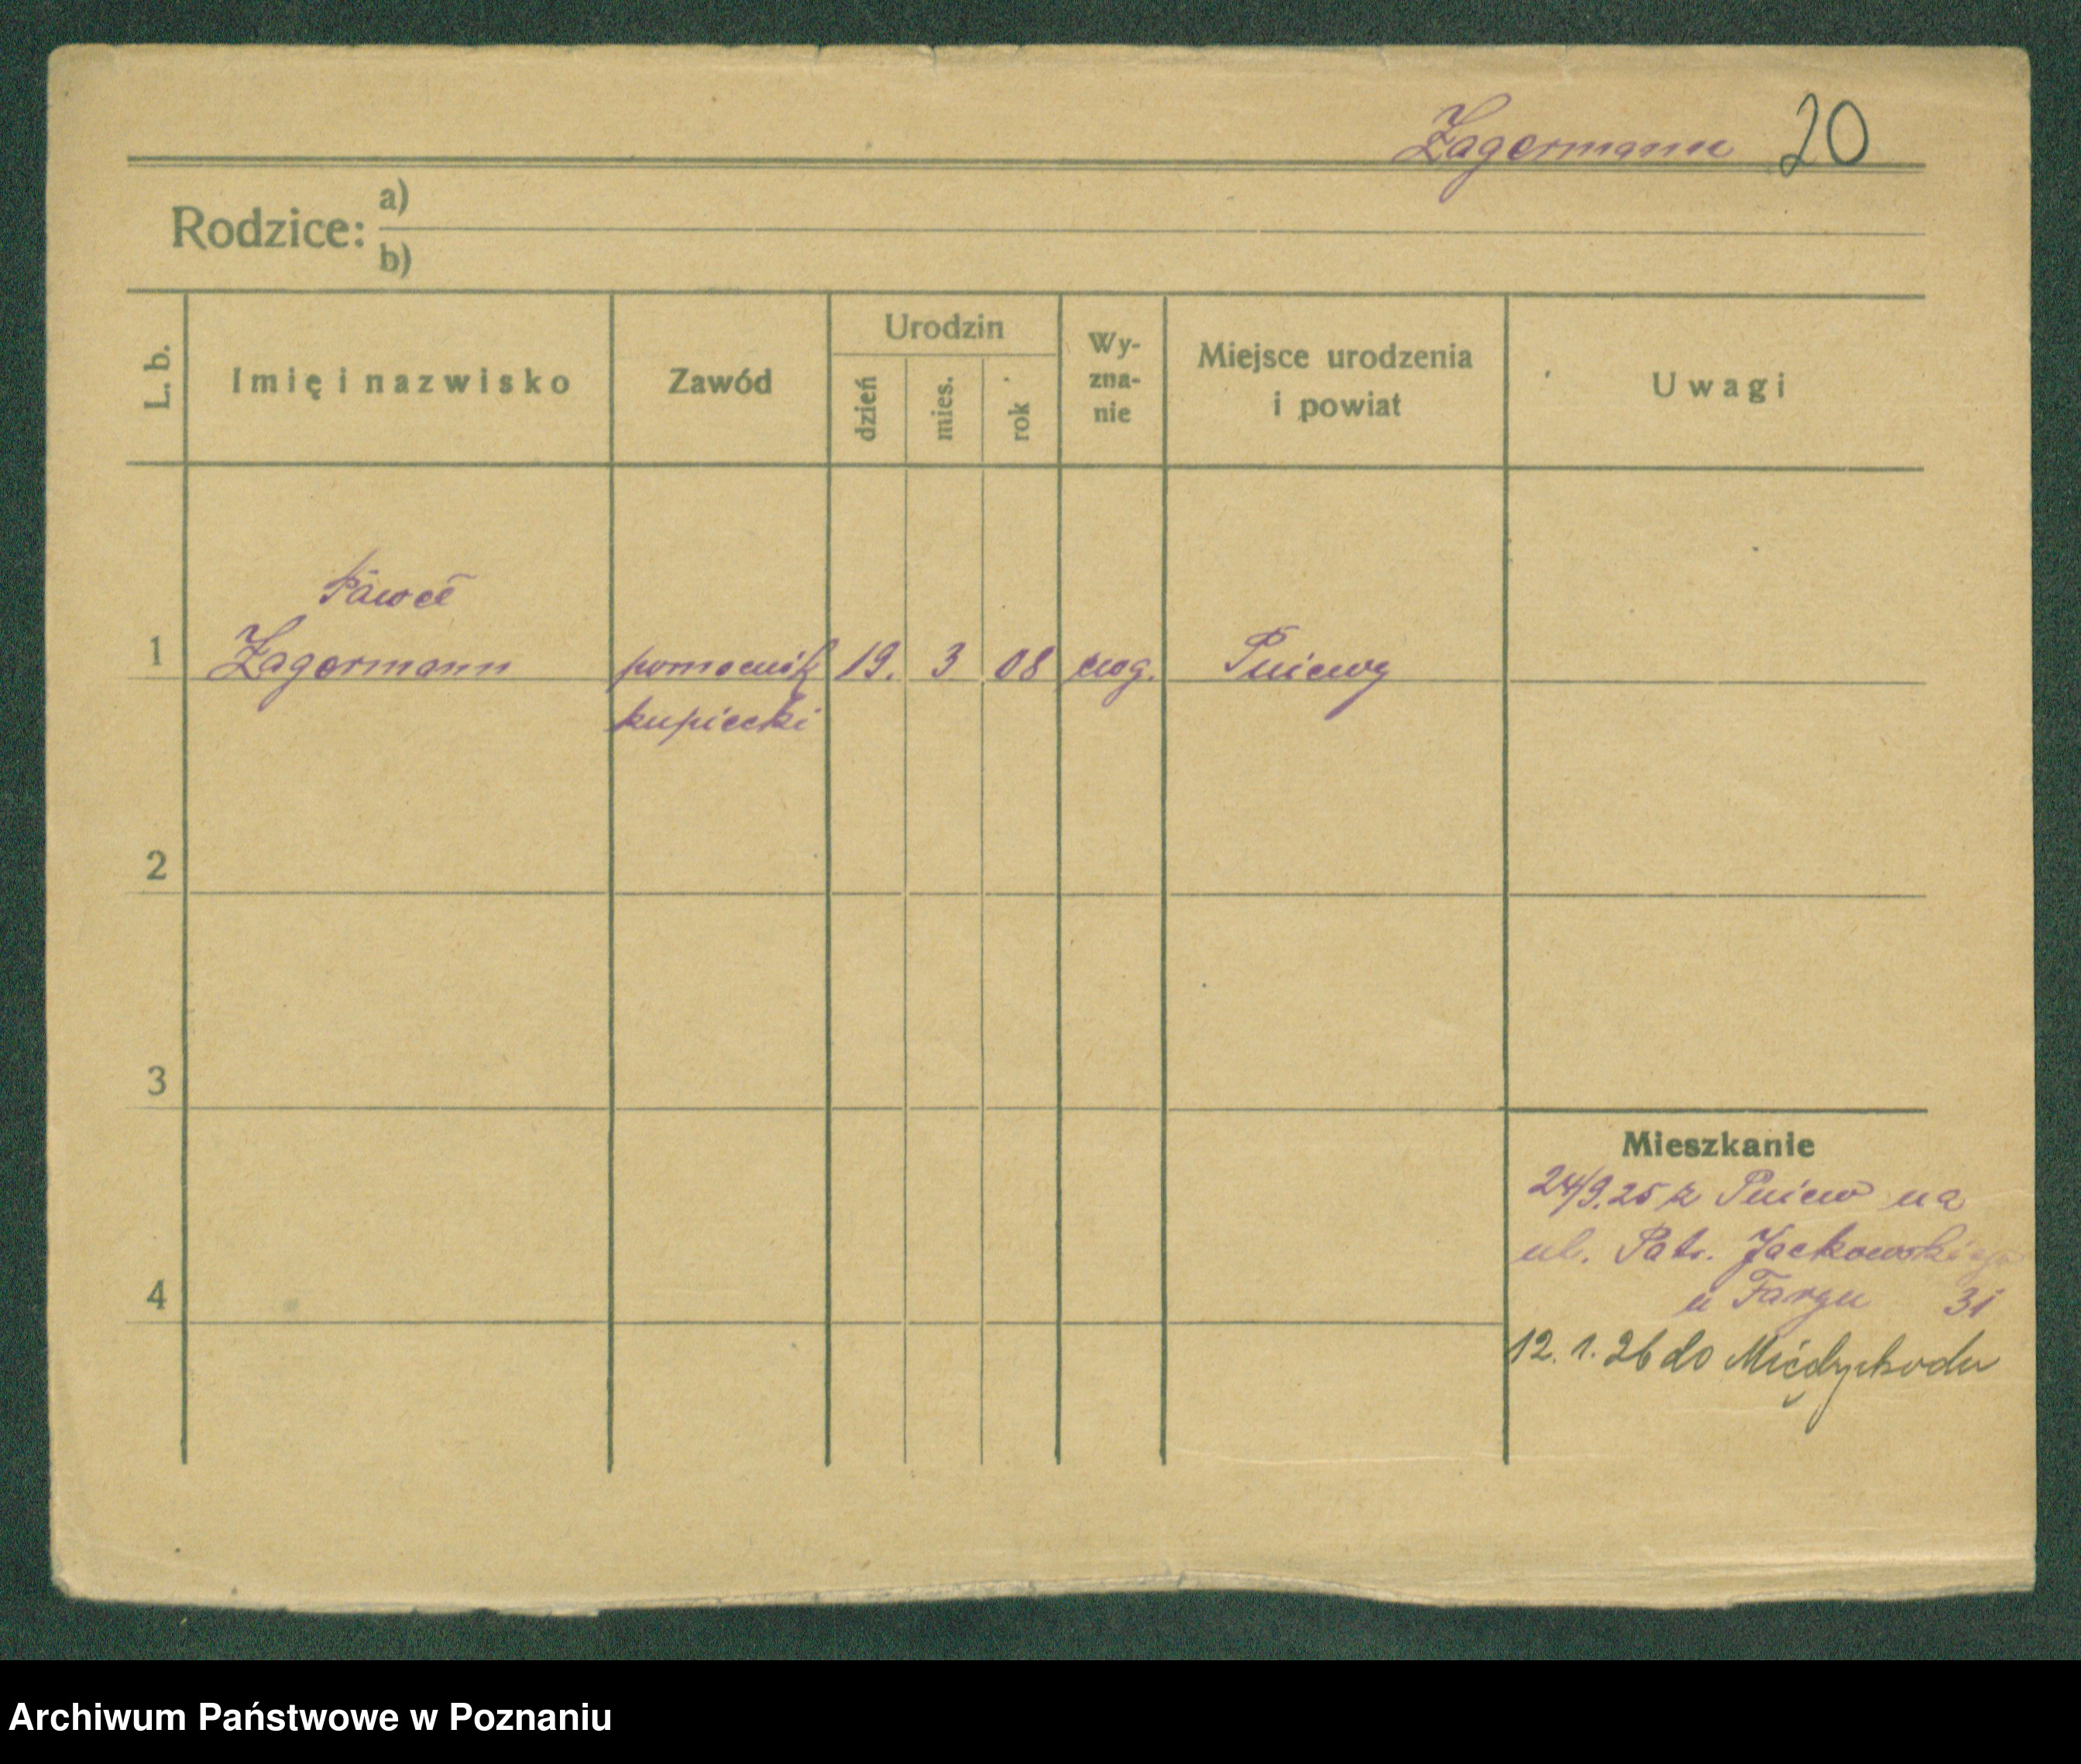 Zagermann 20
Rodzice:
a)
b)
L. b.
Imię i nazwisko
Zawód
Urodzin
dzień
mies.
rok
Wy-
zna-
nie
Miejsce urodzenia
i powiat
Uwagi
Paweł
1 Zagermann pomocnik 19. 3 08 ewg. Pniewy
kupiecki
2
3
4
Mieszkanie
24/9.25 z Pniew na
ul. Patr. Jackowskiego
u Fargu 31
12. 1. 26 do Międzychodu
Archiwum Państwowe w Poznaniu